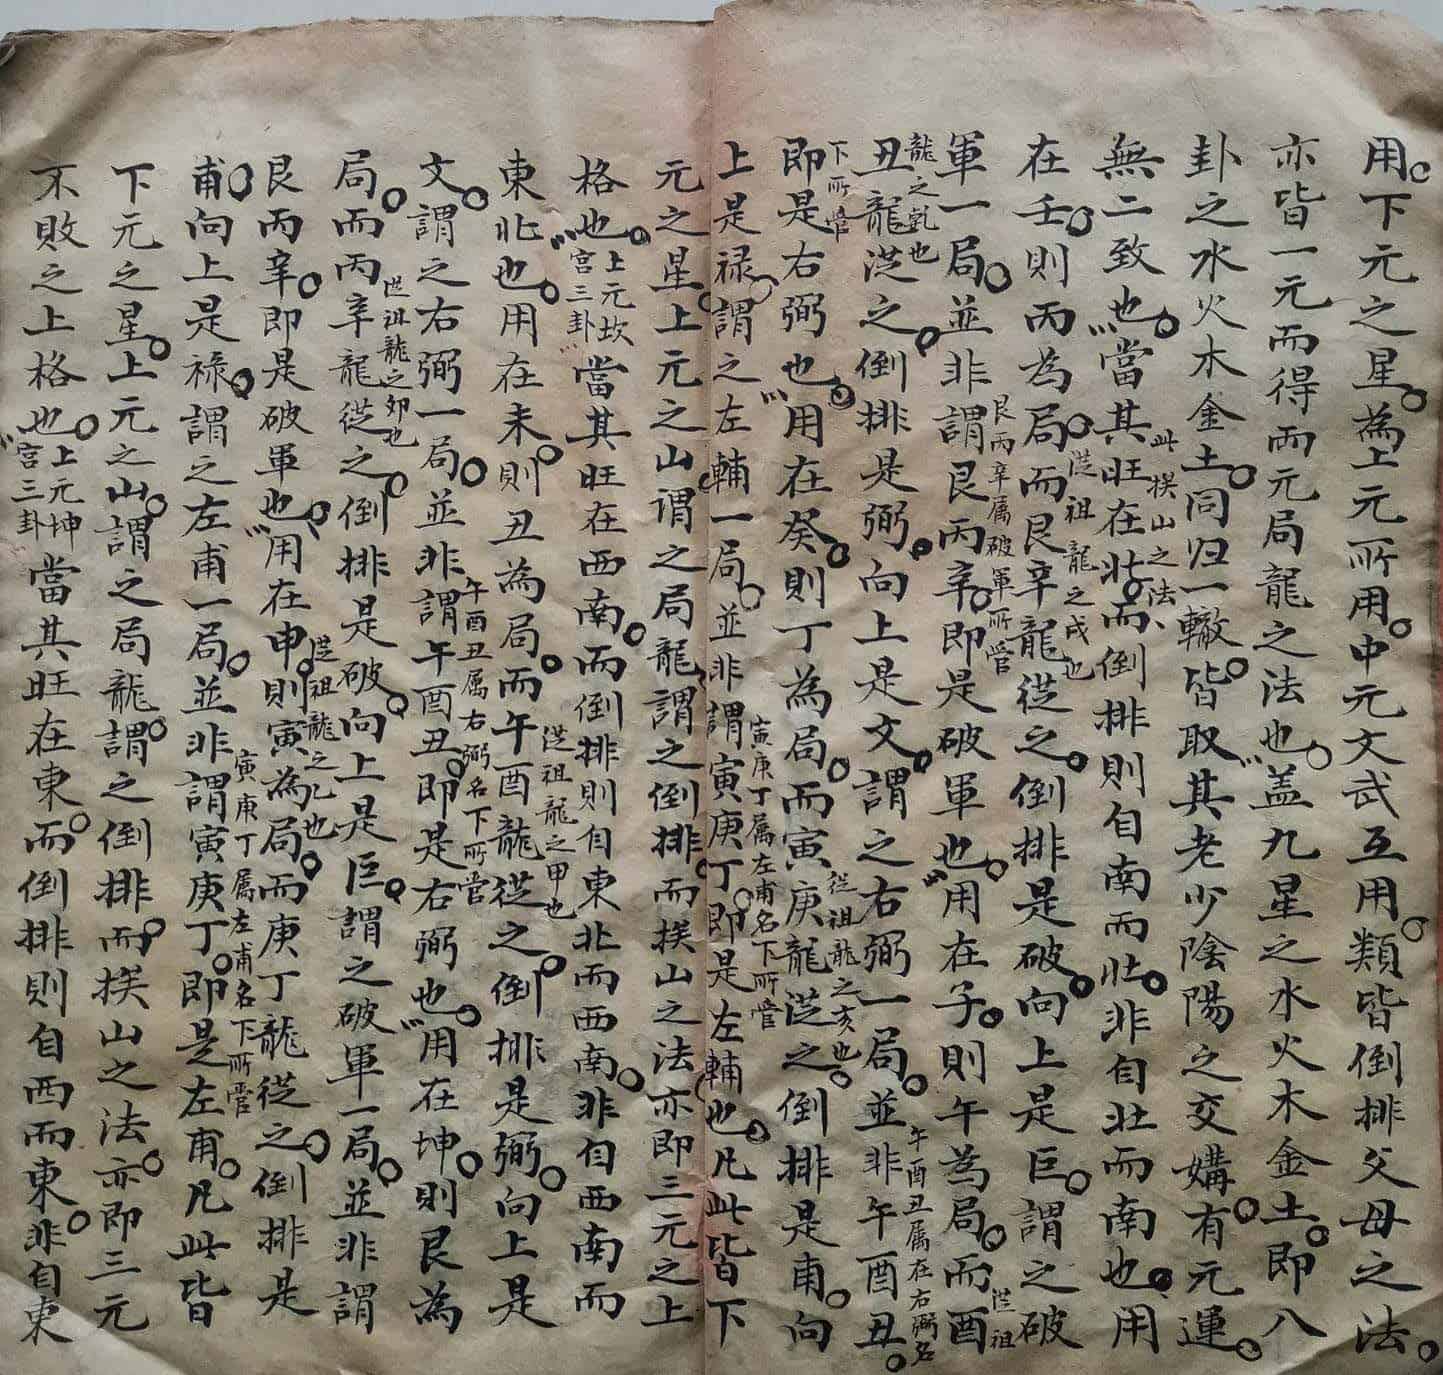 用。下元之星。為上元所用。中元文武互用。類皆倒排父母之法。
亦皆一元而得而元局龍之法也。盖九星之水火木金土。即八
卦之水火木金土。同归一轍。皆取其老少陰陽之交媾。有元運。
無二致也。此挨山之法、當其旺在北。而倒排則自南而北。非自北而南也。用
在壬。則丙為局。從祖龍之戌也而艮辛龍從之。倒排是破。向上是巨。謂之破
軍一局。並非謂艮丙辛。艮丙辛属破軍所管即是破軍也。用在子。則午為局。而酉從祖
龍之乾也丑龍從之。倒排是弼。向上是文。謂之右弼一局。並非午酉丑。午酉丑属在右弼名
下所管即是右弼也。用在癸。則丁為局。而寅庚龍從之倒排是甫。從祖龍之亥也。向
上是禄。謂之左輔一局。並非謂寅庚丁。寅庚丁属左甫名下所管即是左輔也。凡此皆下
元之星。上元之山谓之局龍。謂之倒排。而挨山之法亦即三元之上
格也。上元坎宫三卦當其旺在西南。而倒排則自東北而西南。非自西南而
東北也。用在未。則丑為局。而午酉龍從之。從祖龍之甲也倒排是弼。向上是
文。謂之右弼一局。並非謂午酉丑。午酉丑属右弼名下所管即是右弼也。用在坤。則艮為
局。而丙辛龍從之。從祖龍之卯也倒排是破。向上是巨。謂之破軍一局。並非謂
艮丙辛。即是破軍也。用在申。則寅為局。從祖龍之乙也而庚丁龍從之。倒排是
甫。向上是禄。謂之左甫一局。並非謂寅庚丁。寅庚丁属左甫名下所管即是左甫。凡此皆
下元之星。上元之山。謂之局龍。謂之倒排。而挨山之法。亦即三元
不敗之上格也。上元坤宫三卦當其旺在東。而倒排則自西而東。非自東